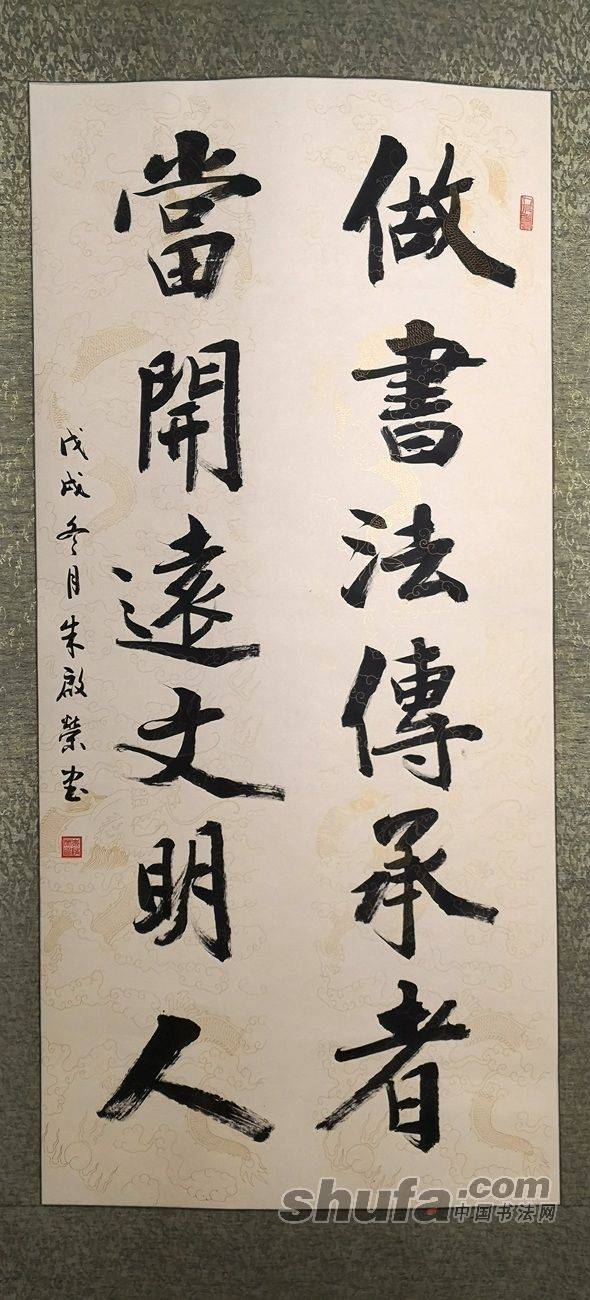 做書法傳承者
當開遠文明人
戊戌冬月朱啟榮书
shufa.com
中国书法网